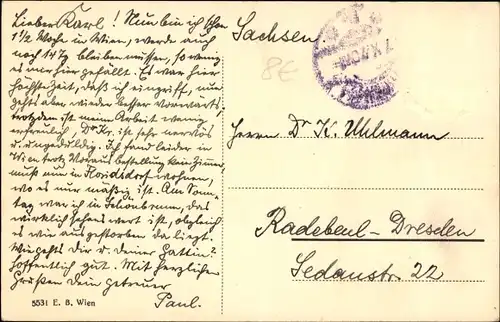 Lieber Karl! Nun bin ich schon
1½ Woche in Wien, werde auch
noch 14 Tg bleiben müssen, so wenig
es mir hier gefällt. Es war hier
höchste Zeit, daß ich eingriff, nun
gehts aber wieder besser vorwärts,
trotzdem ist meine Arbeit wenig
erfreulich, Dr Kr. ist sehr nervös
u. ungeduldig. Ich fand leider in
Wien trotz Vorausbestellung kein Zimmer,
muß nun in Floridsdorf wohnen,
wo es nur mäßig ist. Am Sonn-
tag war ich in Schönbrunn, das
wirklich sehenswert ist, obgleich
es wie ausgestorben da liegt.
Wie gehts Dir u. Deiner Gattin?
Hoffentlich gut. Mit herzlichen
Grüßen Dein getreuer
Paul.
5531 E. B. Wien
Sachsen.
8€
Herrn Dr K. Uhlmann
Radebeul-Dresden
Sedanstr. 22